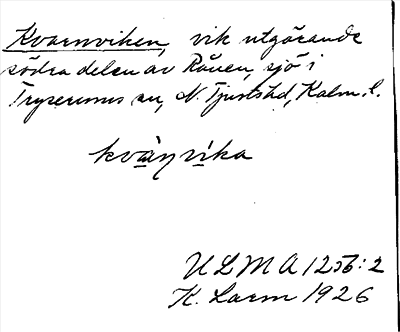 Kvarnviken, vik utgörande
södra delen av Råven, sjö i
Tryserums sn, N. Tjust hd, Kalm. l.
kvàṇvíka
ULMA 1256:2
K. Larm 1926